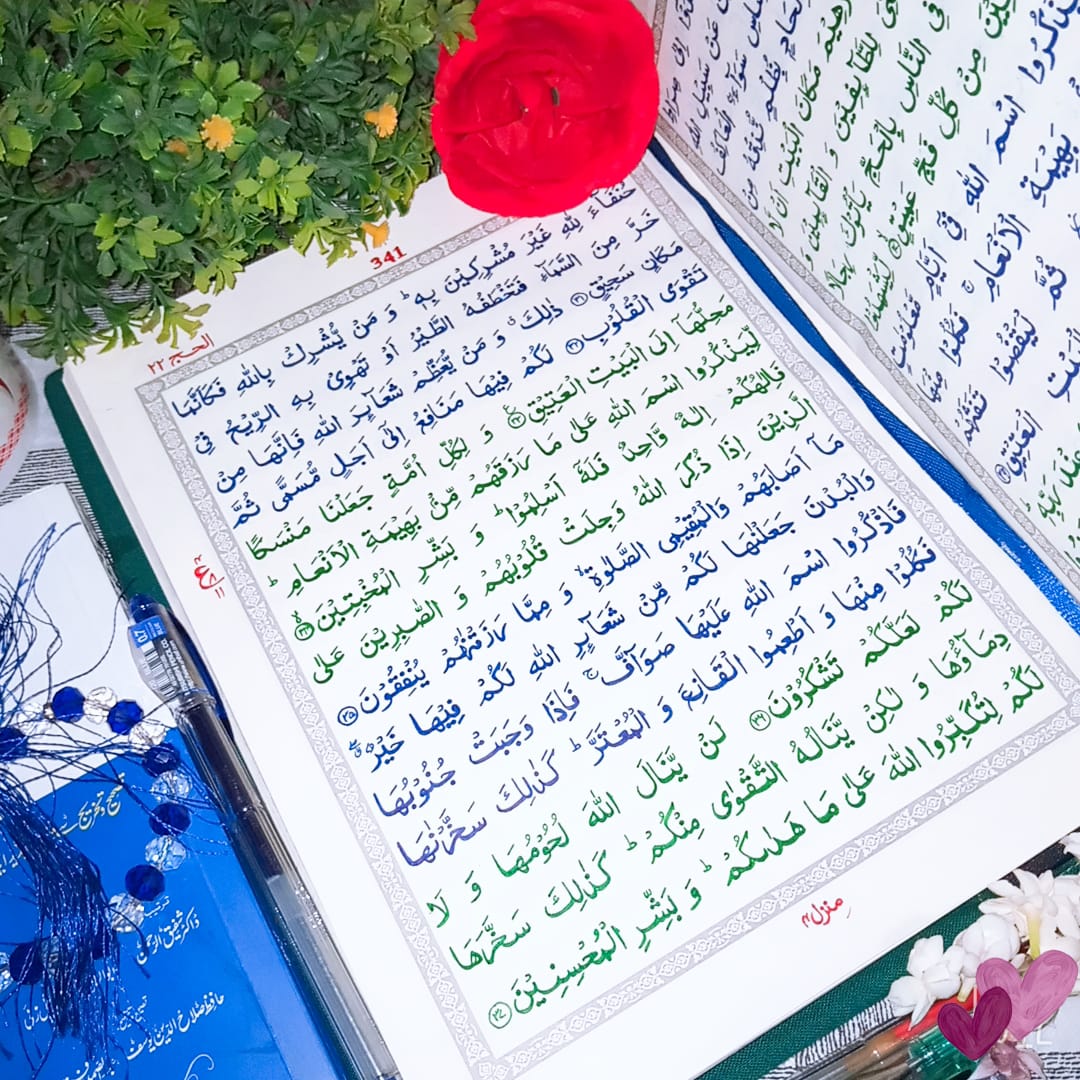 341
الحج ٢٢
حُنَفَآءَ لِلّٰهِ غَيْرَ مُشْرِكِيْنَ بِهٖ ؕ وَ مَنْ يُّشْرِكْ بِاللّٰهِ فَكَاَنَّمَا
خَرَّ مِنَ السَّمَآءِ فَتَخْطَفُهُ الطَّيْرُ اَوْ تَهْوِيْ بِهِ الرِّيْحُ فِيْ
مَكَانٍ سَحِيْقٍ ﴿۳۱﴾ ذٰلِكَ ۗ وَ مَنْ يُّعَظِّمْ شَعَآىِٕرَ اللّٰهِ فَاِنَّهَا مِنْ
تَقْوَى الْقُلُوْبِ ﴿۳۲﴾ لَكُمْ فِيْهَا مَنَافِعُ اِلٰۤى اَجَلٍ مُّسَمًّى ثُمَّ
مَحِلُّهَاۤ اِلَى الْبَيْتِ الْعَتِيْقِ ﴿۳۳﴾ وَ لِكُلِّ اُمَّةٍ جَعَلْنَا مَنْسَكًا
لِّيَذْكُرُوا اسْمَ اللّٰهِ عَلٰى مَا رَزَقَهُمْ مِّنْۢ بَهِيْمَةِ الْاَنْعَامِ ؕ
فَاِلٰهُكُمْ اِلٰهٌ وَّاحِدٌ فَلَهٗۤ اَسْلِمُوْا ؕ وَ بَشِّرِ الْمُخْبِتِيْنَ ﴿۳۴﴾
الَّذِيْنَ اِذَا ذُكِرَ اللّٰهُ وَجِلَتْ قُلُوْبُهُمْ وَ الصّٰبِرِيْنَ عَلٰى
مَاۤ اَصَابَهُمْ وَالْمُقِيْمِي الصَّلٰوةِ ۙ وَ مِمَّا رَزَقْنٰهُمْ يُنْفِقُوْنَ ﴿۳۵﴾
وَالْبُدْنَ جَعَلْنٰهَا لَكُمْ مِّنْ شَعَآىِٕرِ اللّٰهِ لَكُمْ فِيْهَا خَيْرٌ ۖۗ
فَاذْكُرُوا اسْمَ اللّٰهِ عَلَيْهَا صَوَآفَّ ۚ فَاِذَا وَجَبَتْ جُنُوْبُهَا
فَكُلُوْا مِنْهَا وَ اَطْعِمُوا الْقَانِعَ وَ الْمُعْتَرَّ ؕ كَذٰلِكَ سَخَّرْنٰهَا
لَكُمْ لَعَلَّكُمْ تَشْكُرُوْنَ ﴿۳۶﴾ لَنْ يَّنَالَ اللّٰهَ لُحُوْمُهَا وَ لَا
دِمَآؤُهَا وَ لٰكِنْ يَّنَالُهُ التَّقْوٰى مِنْكُمْ ؕ كَذٰلِكَ سَخَّرَهَا
لَكُمْ لِتُكَبِّرُوا اللّٰهَ عَلٰى مَا هَدٰىكُمْ ؕ وَ بَشِّرِ الْمُحْسِنِيْنَ ﴿۳۷﴾
منزل ۴
ع
۱۱
عَنْ سَبِيْلِ اللّٰهِ
مَكَانَ الْبَيْتِ اَنْ لَّا
لِلطَّآىِٕفِيْنَ وَ الْقَآىِٕمِيْنَ وَ
فِي النَّاسِ بِالْحَجِّ يَاْتُوْكَ رِجَالًا
مِنْ كُلِّ فَجٍّ عَمِيْقٍ ﴿۲۷﴾ لِّيَشْهَدُوْا
اسْمَ اللّٰهِ فِيْۤ اَيَّامٍ مَّعْلُوْمٰتٍ
بَهِيْمَةِ الْاَنْعَامِ ۚ فَكُلُوْا مِنْهَا
ثُمَّ لْيَقْضُوْا تَفَثَهُمْ
الْعَتِيْقِ ﴿۲۹﴾
تصحیح و تخریج
ترتیب
ڈاکٹر شفیق الرحمٰن
حافظ صلاح الدین یوسف